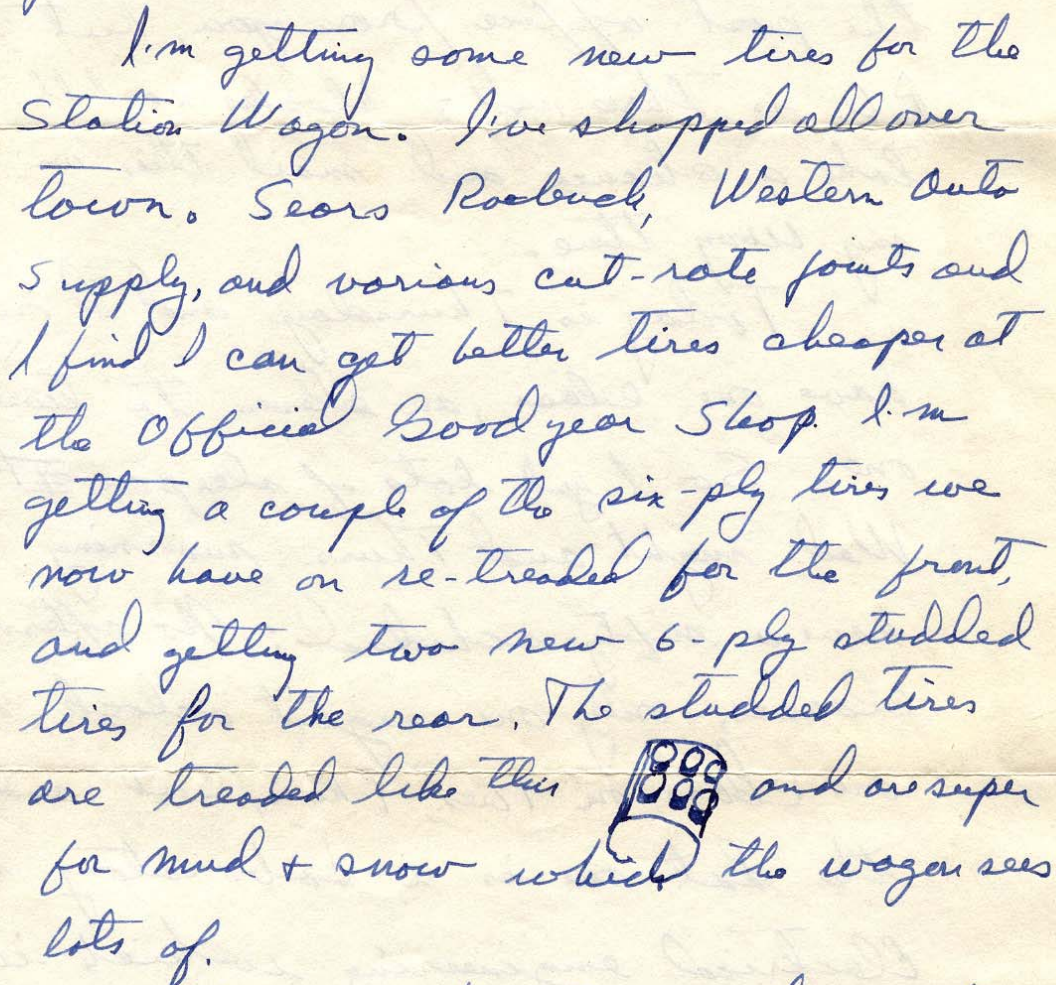 I'm getting some new tires for the
Station Wagon. I've shopped all over
town. Sears Roebuck, Western Auto
Supply, and various cut-rate joints and
I find I can get better tires cheaper at
the Official Goodyear Shop. I'm
getting a couple of the six-ply tires we
now have on re-treaded for the front,
and getting two new 6-ply studded
tires for the rear. The studded tires
are treaded like this and are super
for mud + snow which the wagon sees
lots of.